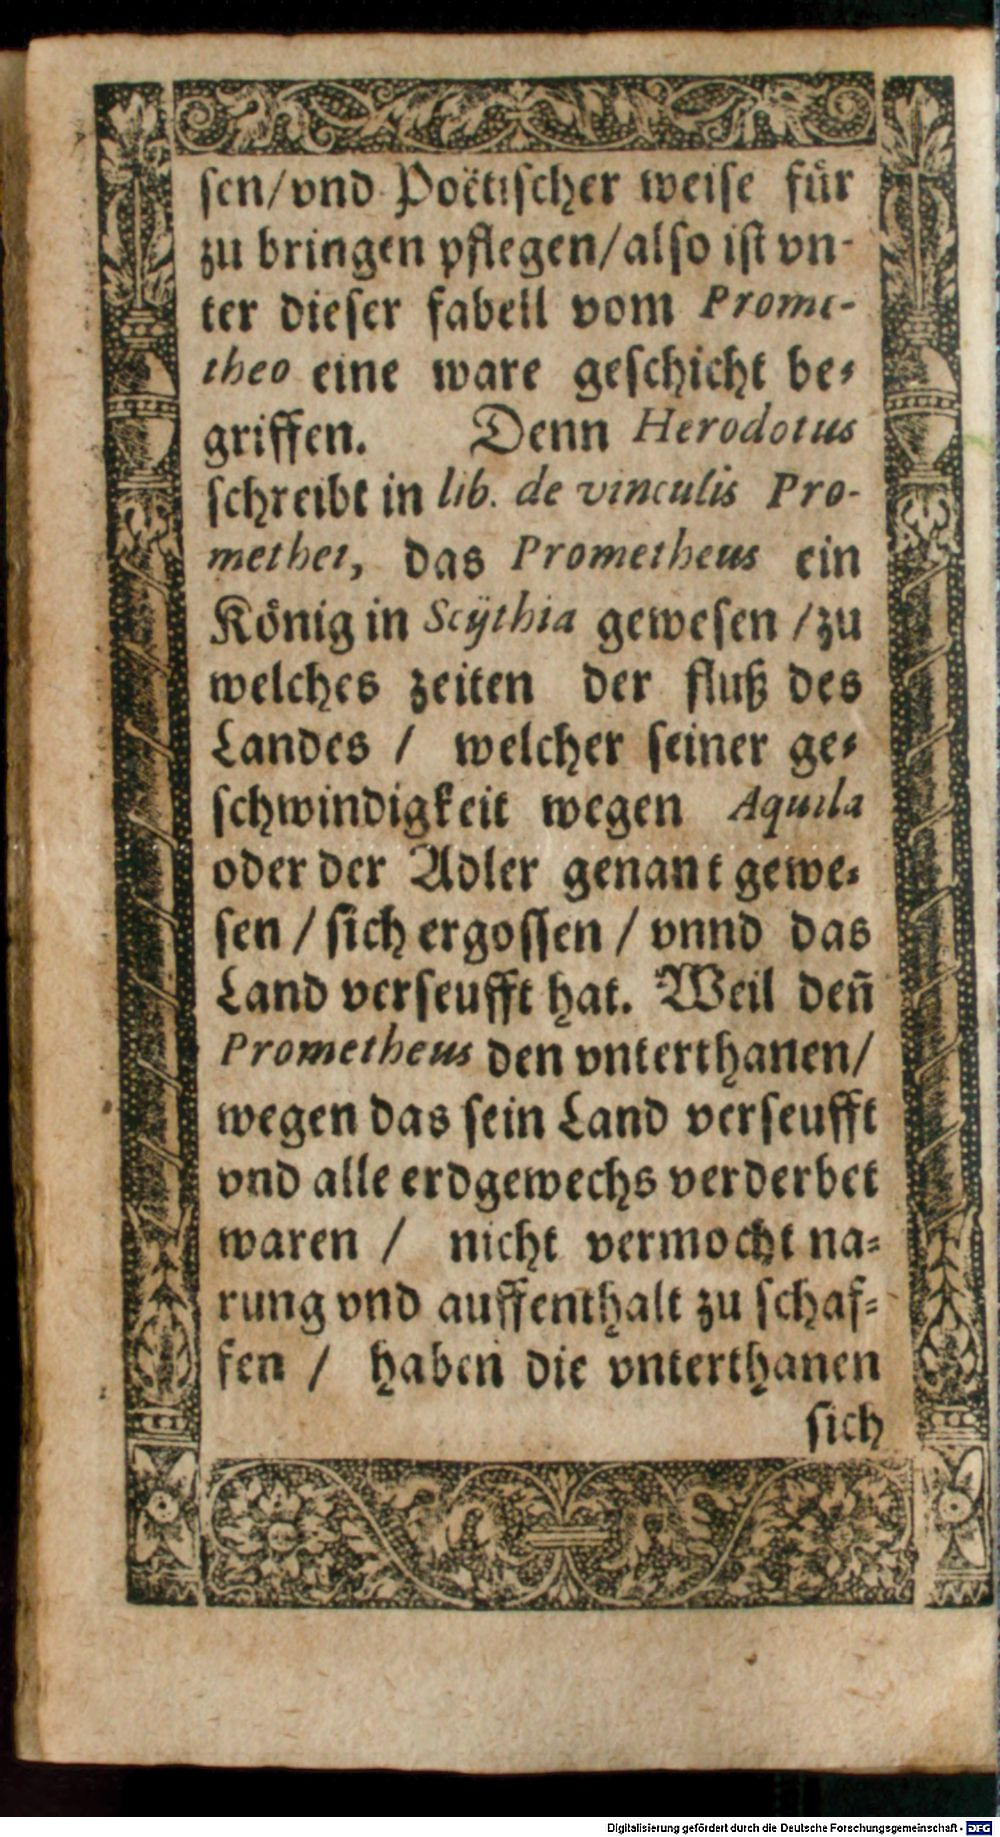 sen/vnd Poëtischer weise für
zu bringen pflegen/also ist vn-
ter dieser fabell vom Prome-
theo eine ware geschicht be-
griffen. Denn Herodotus
schreibt in lib. de vinculis Pro-
methei, das Prometheus ein
König in Scÿthia gewesen /zu
welches zeiten der fluß des
Landes / welcher seiner ge-
schwindigkeit wegen Aquila
oder der Adler genant gewe-
sen / sich ergossen / vnnd das
Land verseufft hat. Weil deñ
Prometheus den vnterthanen/
wegen das sein Land verseufft
vnd alle erdgewechs verderbet
waren / nicht vermocht na-
rung vnd auffenthalt zu schaf-
fen / haben die vnterthanen
sich
Digitalisierung gefördert durch die Deutsche Forschungsgemeinschaft - DFG